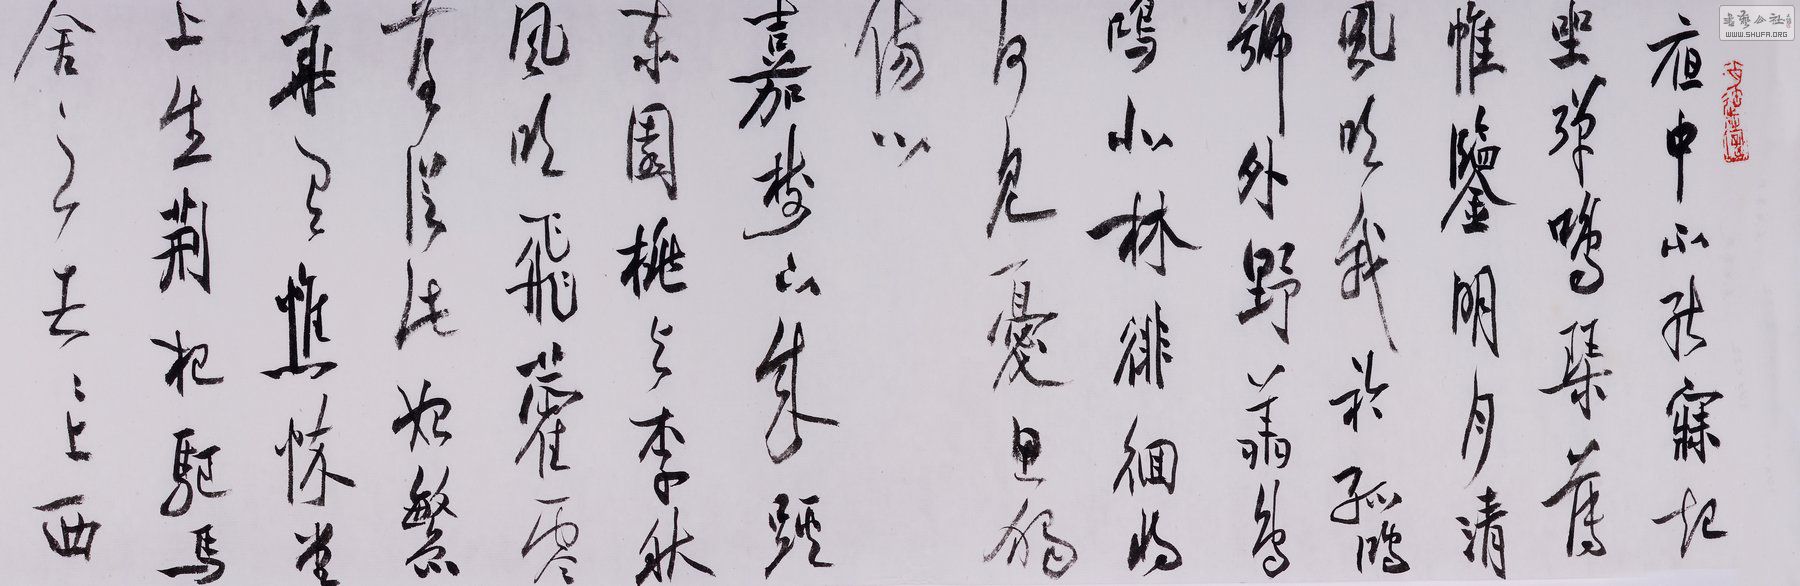 夜中不能寐起
坐彈鳴琴薄
帷鑒明月清
風吹我衿孤鴻
號外野翔鳥
鳴北林徘徊將
何見憂思獨
傷心
嘉樹下成蹊
東園桃與李秋
風吹飛藿零
落從此始繁
華有憔悴堂
上生荊杞驅馬
舍之去々上西
書藝公社
WWW.SHUFA.ORG